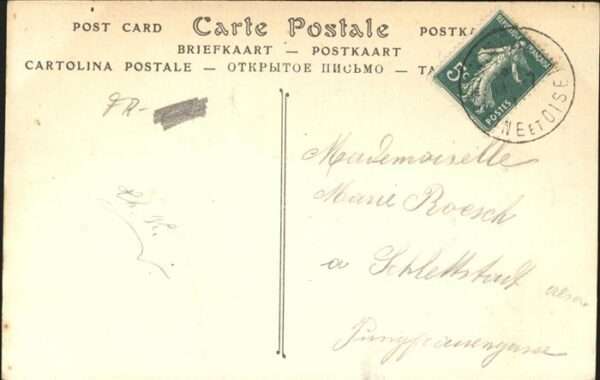 POST CARD Carte Postale POSTKA
BRIEFKAART — POSTKAART
CARTOLINA POSTALE — ОТКРЫТОЕ ПИСЬМО — TA
5c
POSTES
NE ET OISE
Mademoiselle
Marie Roesch
a Schlettstadt
Jungfrauengasse